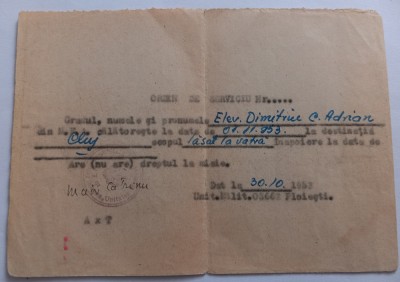 ORDIN DE SERVICIU Nr.....
Gradul, numele și pronumele Elev. Dimitriu C. Adrian
din M.F.A. călătorește la data de 01.11.953. la destinația
Cluj scopul "lăsat la vatră" înapoiere la data de
Are (nu are) dreptul la misie.
Dat la 30.10. 1953
Unit.Milit.03662 Ploiești.